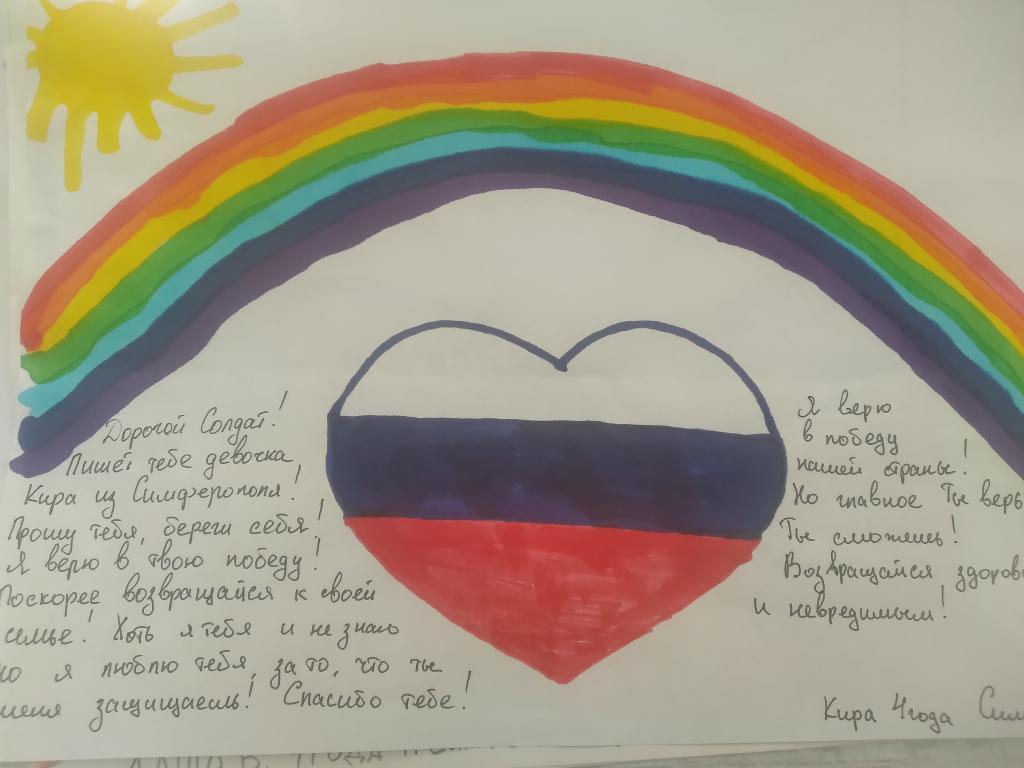 Дорогой Солдат!
Пишет тебе девочка
Кира из Симферополя!
Прошу тебя, береги себя!
Я верю в твою победу!
Поскорее возвращайся к своей
семье! Хоть я тебя и не знаю
но я люблю тебя, за то, что ты
меня защищаешь! Спасибо тебе!
Я верю
в победу
нашей страны!
Но главное Ты верь
Ты сможешь!
Возвращайся здоровы
и невредимым!
Кира 4года